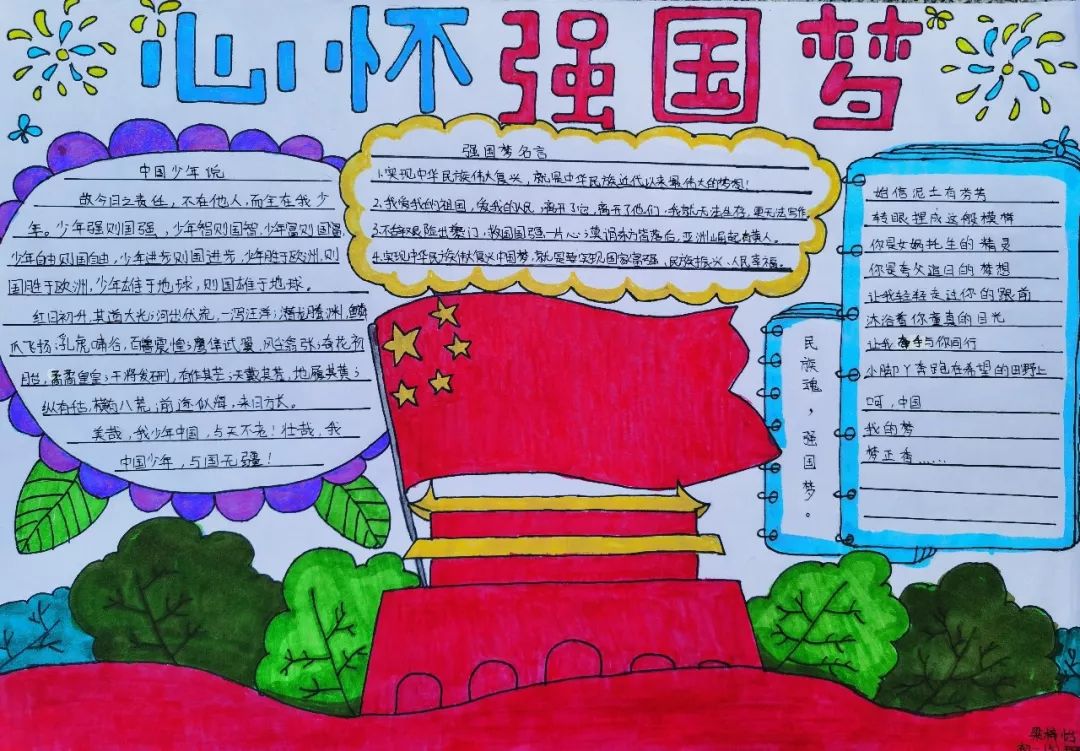 心怀强国梦
中国少年说
故今日之责任，不在他人，而全在我少
年。少年强则国强，少年智则国智，少年富则国富
少年自由则国自由，少年进步则国进步，少年胜于欧洲，则
国胜于欧洲，少年雄于地球，则国雄于地球。
红日初升，其道大光；河出伏流，一泻汪洋；潜龙腾渊，鳞
爪飞扬；乳虎啸谷，百兽震惶；鹰隼试翼，风尘翕张；奇花初
胎，矞矞皇皇；干将发硎，有作其芒；天戴其苍，地履其黄；
纵有千古，横有八荒；前途似海，来日方长。
美哉，我少年中国，与天不老！壮哉，我
中国少年，与国无疆！
强国梦名言
1.实现中华民族伟大复兴，就是中华民族近代以来最伟大的梦想！
2.我爱我的祖国，爱我的人民，离开了它，离开了他们，我就无法生存，更无法写作。
3.不辞艰险出夔门，救国图强一片心；莫谓东方皆落后，亚洲崛起有黄人。
4.实现中华民族伟大复兴中国梦，就是要实现国家富强、民族振兴、人民幸福。
民族魂，强国梦。
相信泥土有芬芳
转眼捏成这般模样
你是女娲托生的精灵
你是夸父追日的梦想
让我轻轻走过你的跟前
沐浴着你童真的目光
让我牵手与你同行
小脚丫奔跑在希望的田野上
呵，中国
我的梦
梦正香……